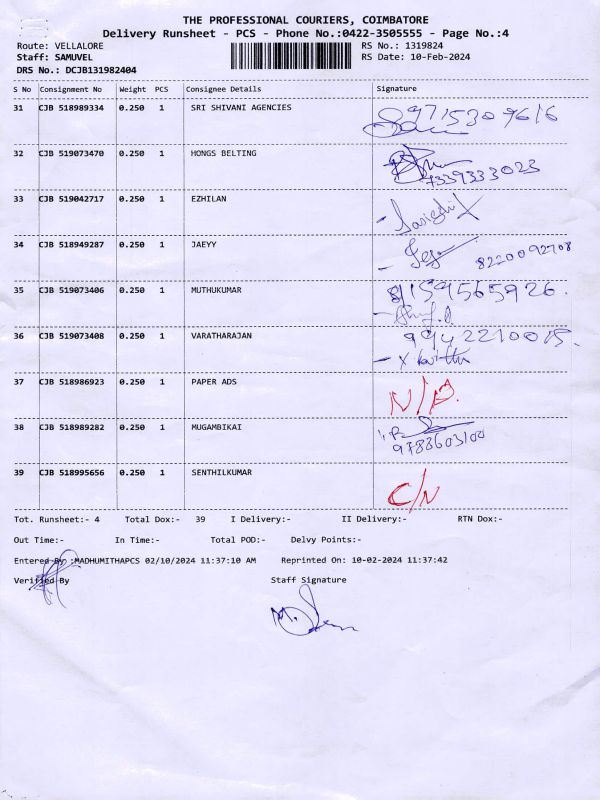 THE PROFESSIONAL COURIERS, COIMBATORE
Delivery Runsheet - PCS - Phone No.:0422-3505555 - Page No.:4
Route: VELLALORE RS No.: 1319824
Staff: SAMUVEL RS Date: 10-Feb-2024
DRS No.: DCJB131982404
S No Consignment No Weight PCS Consignee Details Signature
31 CJB 518989334 0.250 1 SRI SHIVANI AGENCIES 9715309616
32 CJB 519073470 0.250 1 HONGS BELTING
7339333023
33 CJB 519042717 0.250 1 EZHILAN
34 CJB 518949287 0.250 1 JAEYY 8220092708
35 CJB 519073406 0.250 1 MUTHUKUMAR 8159456 5926.
36 CJB 519073408 0.250 1 VARATHARAJAN 9942210015.
37 CJB 518986923 0.250 1 PAPER ADS N/P.
38 CJB 518989282 0.250 1 MUGAMBIKAI
9788603100
39 CJB 518995656 0.250 1 SENTHILKUMAR C/N
Tot. Runsheet:- 4 Total Dox:- 39 I Delivery:- II Delivery:- RTN Dox:-
Out Time:- In Time:- Total POD:- Delvy Points:-
Entered By :MADHUMITHAPCS 02/10/2024 11:37:10 AM Reprinted On: 10-02-2024 11:37:42
Verified By Staff Signature